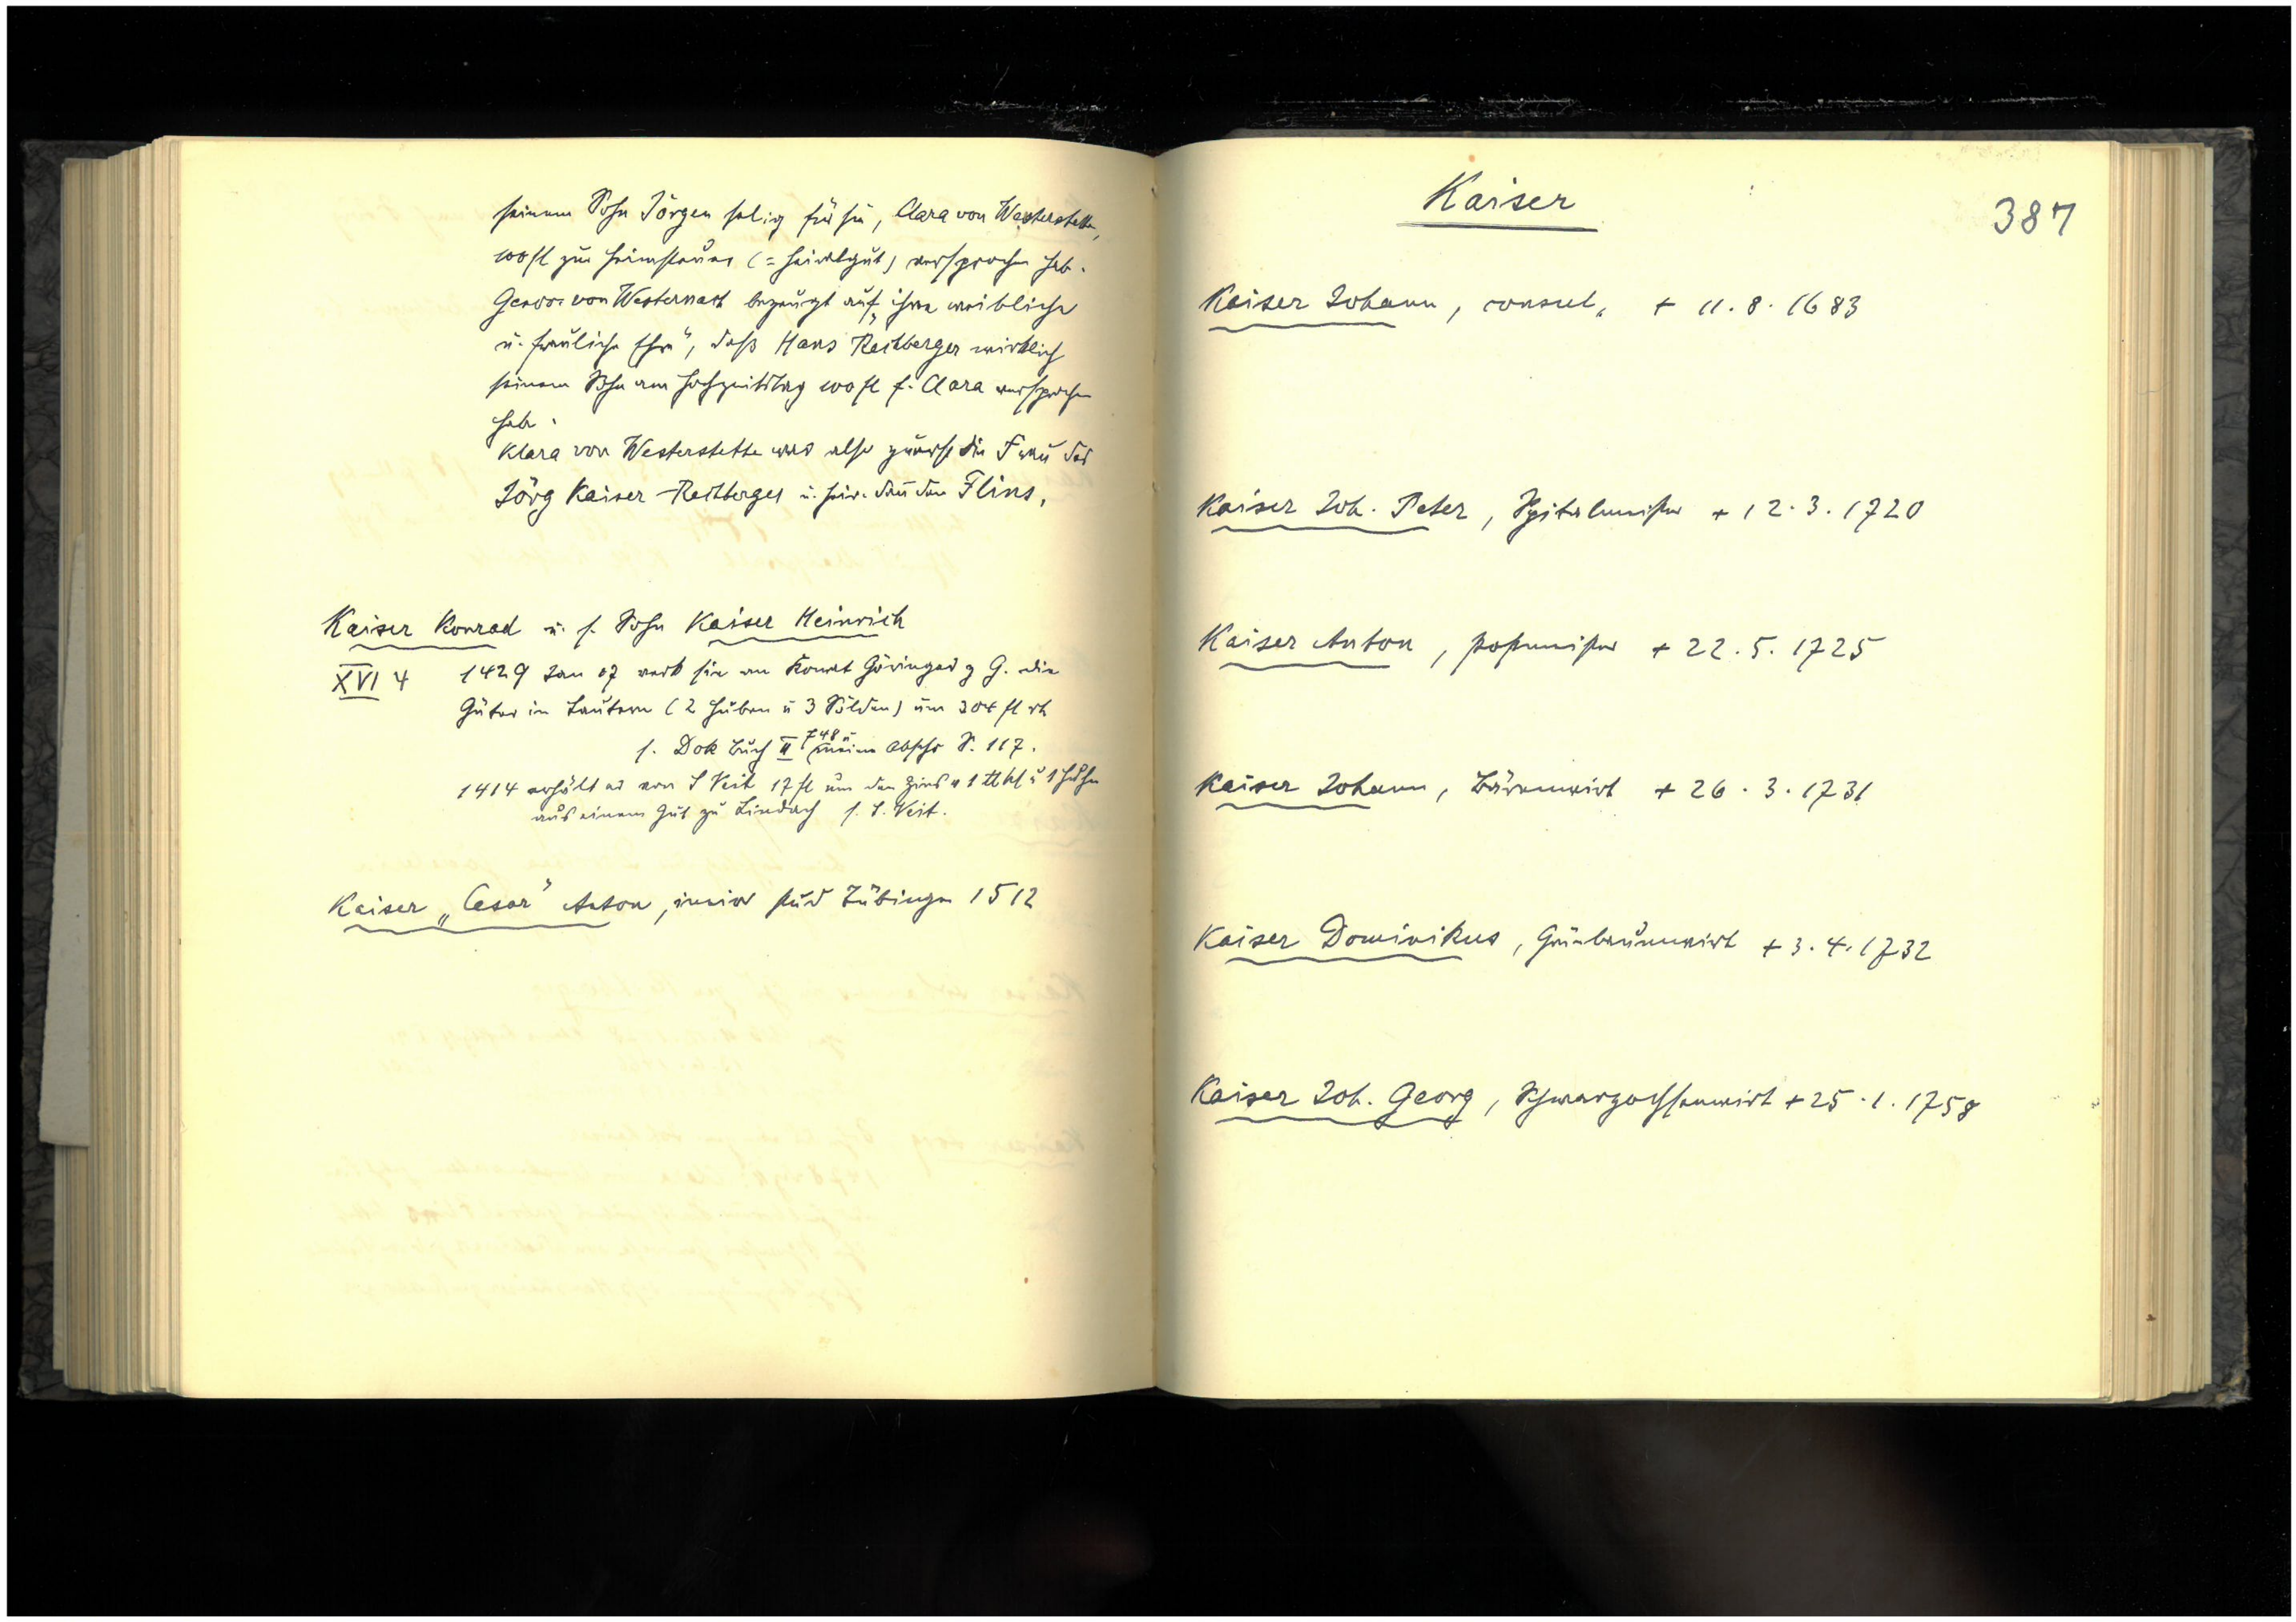 seinem Sohn Jörgen selig für sie, Clara von Westerstette,
100 fl zu Heimsteuer (= Heiratgut) versprochen hab.
von Westernach bezeugt auf „ihre weibliche
u. frauliche Ehre", daß Hans Rechberger wirklich
seinem Sohn am Hochzeitstag 100 fl f. Clara versprochen
habe.
Klara von Westerstette war also zuerst die Frau des
Jörg Kaiser-Rechberger u. heir. dann den Flins.
Kaiser Konrad u. s. Sohn Kaiser Heinrich
XVI 4 1429 Jan 07 verk sie an Konrat Göringer z G. die
Güter in Lautern (2 Huben u 3 Sölden) um 304 fl rh
s. Dok Buch II 748 u meine Abschr S. 117.
1414 erhält er von S Veit 17 fl um den Zins v 1 ℔ hl u 1 Huhn
aus einem Gut zu Lindach s. S. Veit.
Kaiser „Cesar" Anton, stud Tübingen 1512
Kaiser
387
Kaiser Johann, consul, + 11. 8. 1683
Kaiser Joh. Peter, Spitalmeister + 12. 3. 1720
Kaiser Anton, Postmeister + 22. 5. 1725
Kaiser Johann, Bärenwirt + 26. 3. 1731
Kaiser Dominikus, Grünbaumwirt + 3. 4. 1732
Kaiser Joh. Georg, Schwarzochsenwirt + 25. 1. 1758